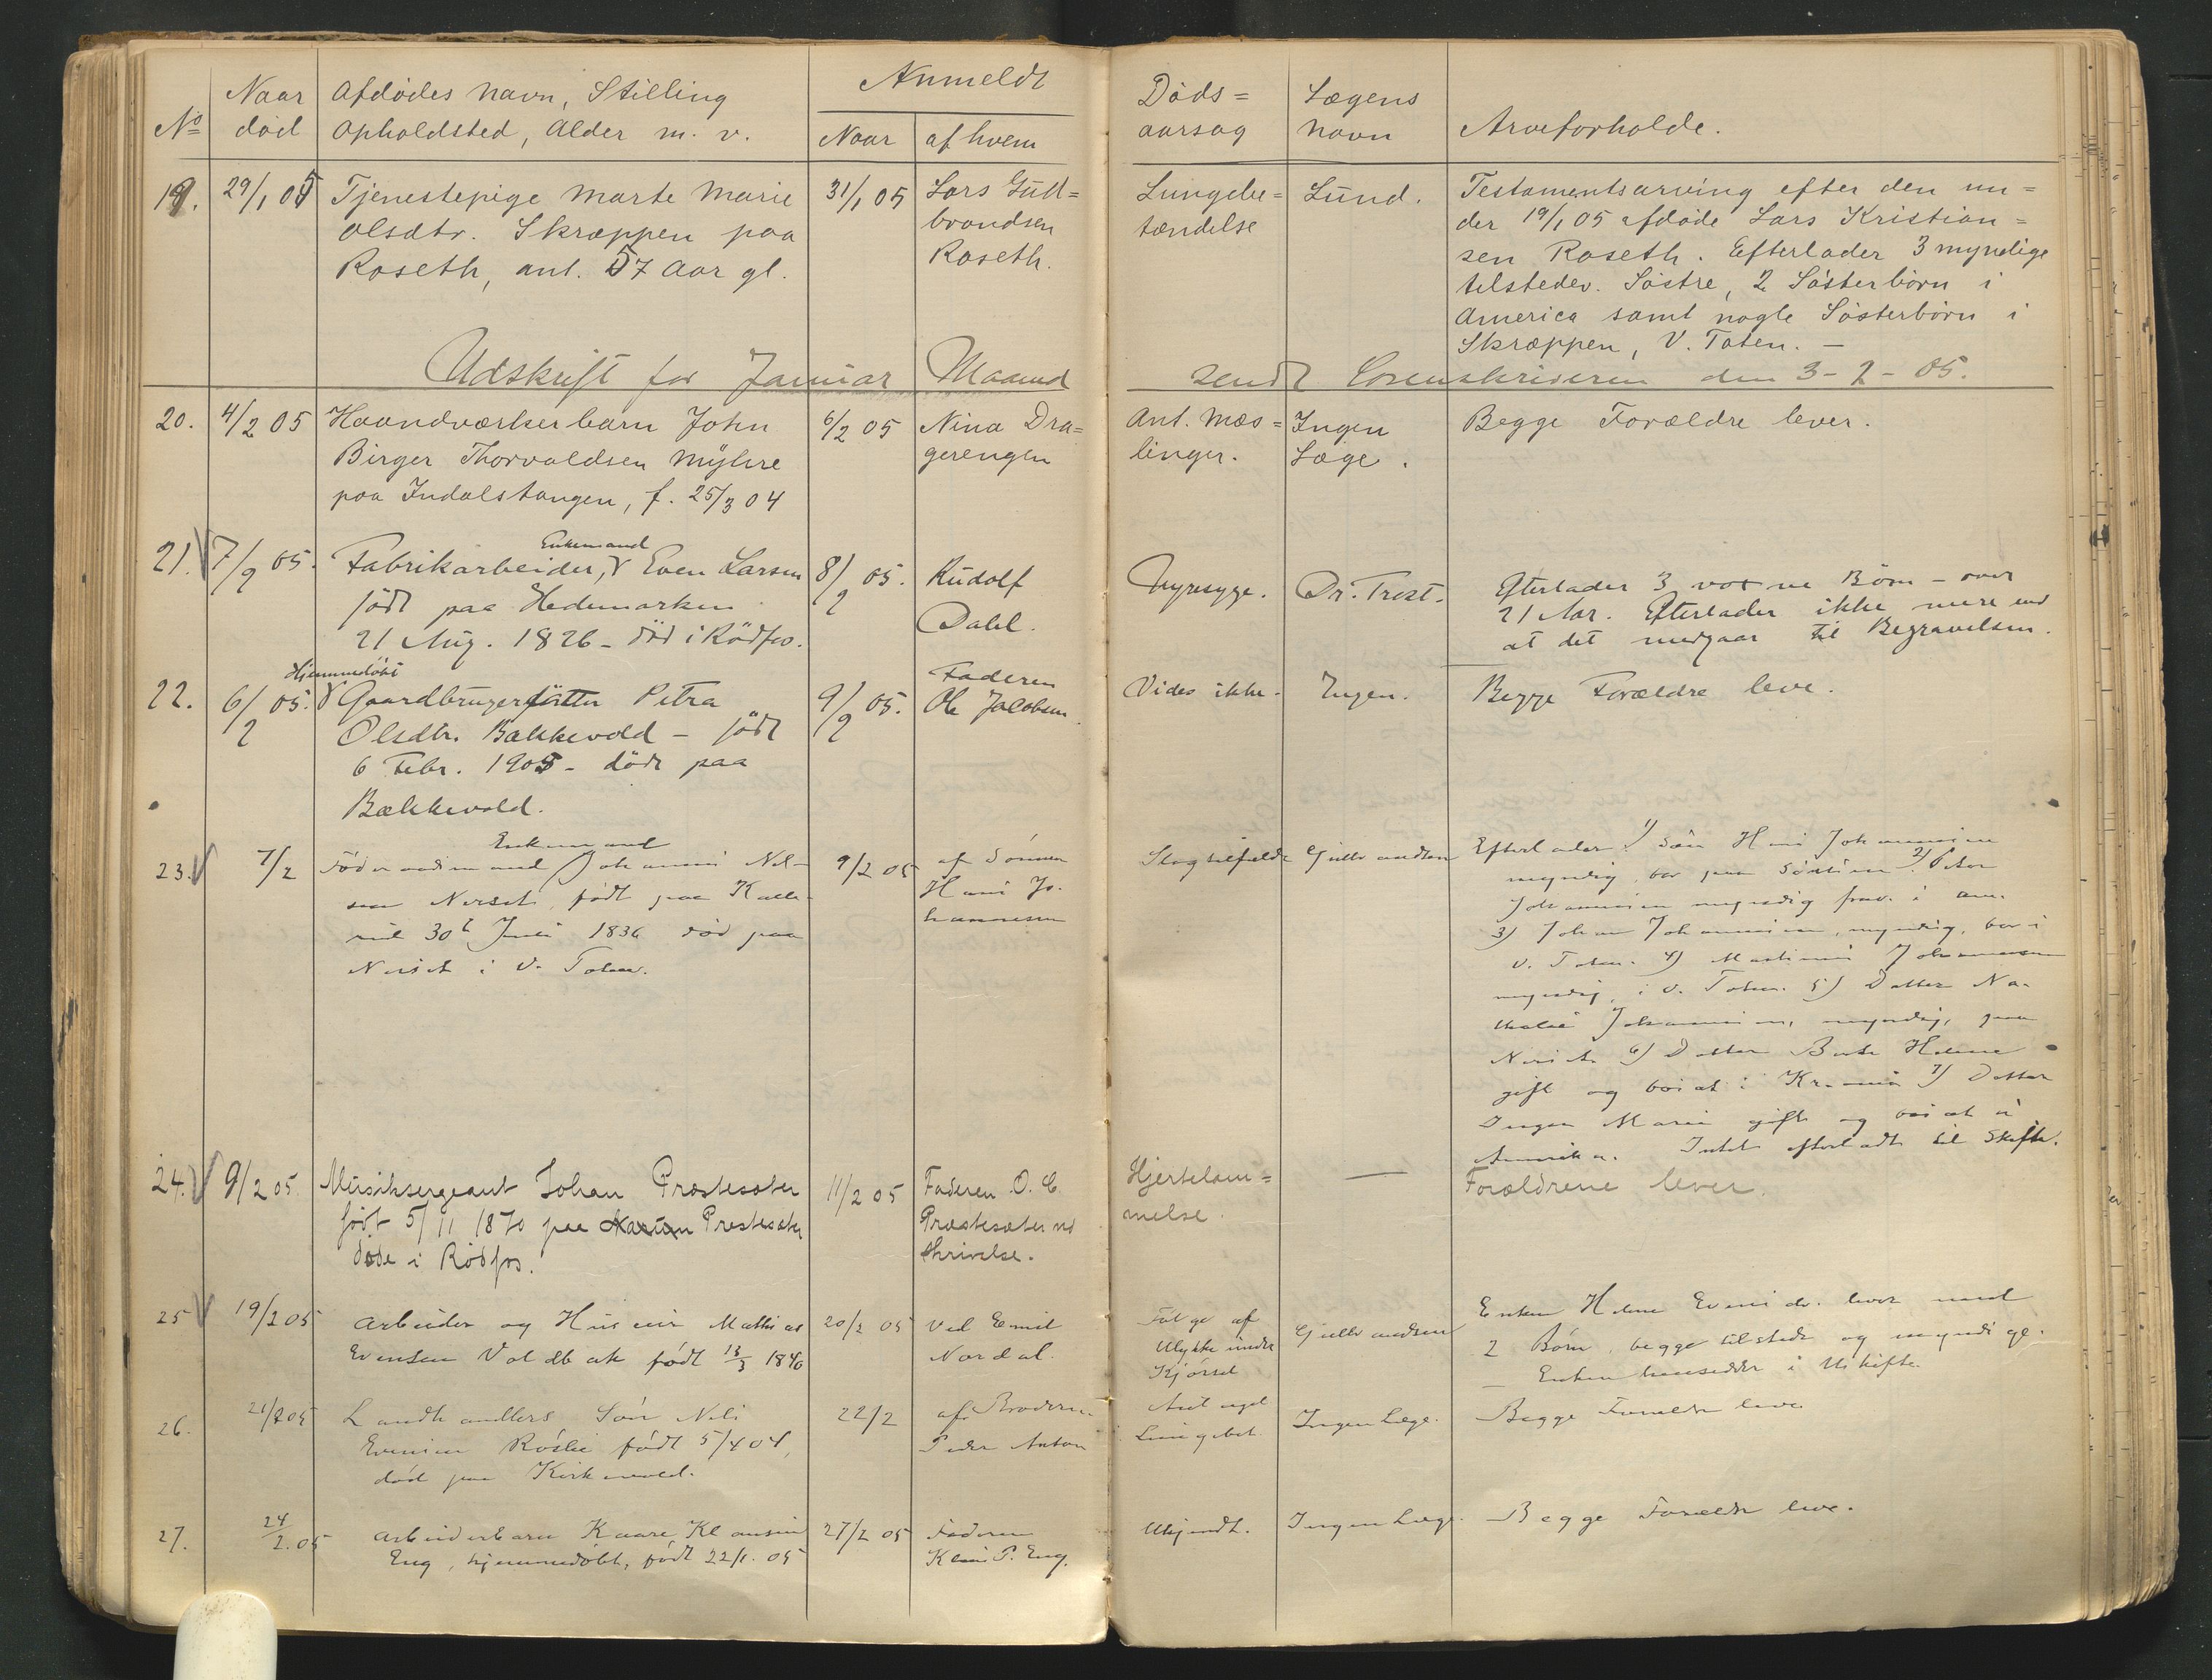 No
Naar
død
Afdødes navn, Stilling
Opholdsted, Alder m. v.
Anmeldt
Naar
af hvem
Døds=
aarsag
Lægens
navn
Arveforholde.
19.
29/1 05
Tjenestepige Marte Marie
Olsdtr. Skræppen paa
Roseth, ant. 57 Aar gl.
31/1 05
Lars Gud=
brandsen
Roseth.
Lungebe=
tændelse
Lund.
Testamentsarving efter den un=
der 19/1 05 afdøde Lars Kristian=
sen Roseth. Efterlader 3 myndige
tilstedev. Søstre, 2 Søsterbørn i
America samt nogle Søsterbørn i
Skræppen, V. Toten. —
Udskrift for Januar Maaned
sendt Sorenskriveren den 3-2-05.
20.
4/2 05
Haandværkerbarn John
Birger Thorvaldsen Myhre
paa Indalstangen, f. 25/3 04
6/2 05
Nina Dra=
gerengen
Ant. Mæs=
linger.
Ingen
Læge.
Begge Forældre lever.
21.
7/2 05.
Enkemand
Fabrikarbeider, Even Larsen
født paa Hedemarken
21 Aug. 1826 - død i Rødfos.
8/2 05.
Rudolf
Dahl.
Nyresyge.
Dr. Trost.
Efterlader 3 voxne Børn - over
21 Aar. Efterlader ikke mere end
at det medgaar til Begravelsen.
22.
6/2 05.
Hjemmedøbt
Gaardbrugerdatter Petra
Olsdtr. Bækkevold - født
6 Febr. 1905 - døde paa
Bækkevold.
9/2 05.
Faderen
Ole Jacobsen.
Vides ikke.
Ingen.
Begge Forældre leve.
23.
7/2
Enkemand
Føderaadsmand Johannes Nil-
sen Nerset, født paa
30te Juni 1836 død paa
Nerset i V. Toten.
9/2 05
af Sønnen
Hans Jo-
hannesen
Slagtilfælde
Gulbrandsen
Efterlader: 1) Søn Hans Johannesen
myndig, bor paa 2) Peter
Johannesen myndig frav. i Am.
3) Johan Johannesen, myndig, bor i
V. Toten. 4) Martinus Johannesen
myndig, i V. Toten. 5) Datter Na-
thalie Johannesen, myndig, paa
Nerset 6) Datter Berte Helene
gift og bosat i Kr-ania 7) Datter
Inger Marie gift og bosat i
Amerika. Intet efterladt til Skifte.
24.
9/2 05
Musiksergeant Johan Præstesæter
født 5/11 1870 paa Præstesæter
døde i Rødfos.
11/2 05
Faderen O. C.
Præstesæter ved
Skrivelse.
Hjertelam=
melse.
—
Forældrene lever.
25
19/2 05
Arbeider og Huseier Mathias
Evensen Voldbak født 13/3 1846
20/2 05
ved Emil
Nordal.
Følge af
Ulykke under
Kjørsel
Gulbrandsen
Enken Helene Evensdr. lever med
2 Børn, begge tilstede og myndige.
— Enken hensidder i Uskifte.
26.
21/2 05
Landhandlers Søn Nils
Evensen Røslie født 5/4 04,
død paa Kirkevold.
22/2
af Broderen
Peder Anton
Lungebet.
Ingen Læge.
Begge Forældre leve
27.
24/2. 05
Arbeiderbarn Kaare Klausen
Eng, hjemmedøbt, født 22/1. 05
27/2 05
Faderen
Klaus P. Eng.
Ukjendt.
Ingen Læge.
Begge Forældre leve.